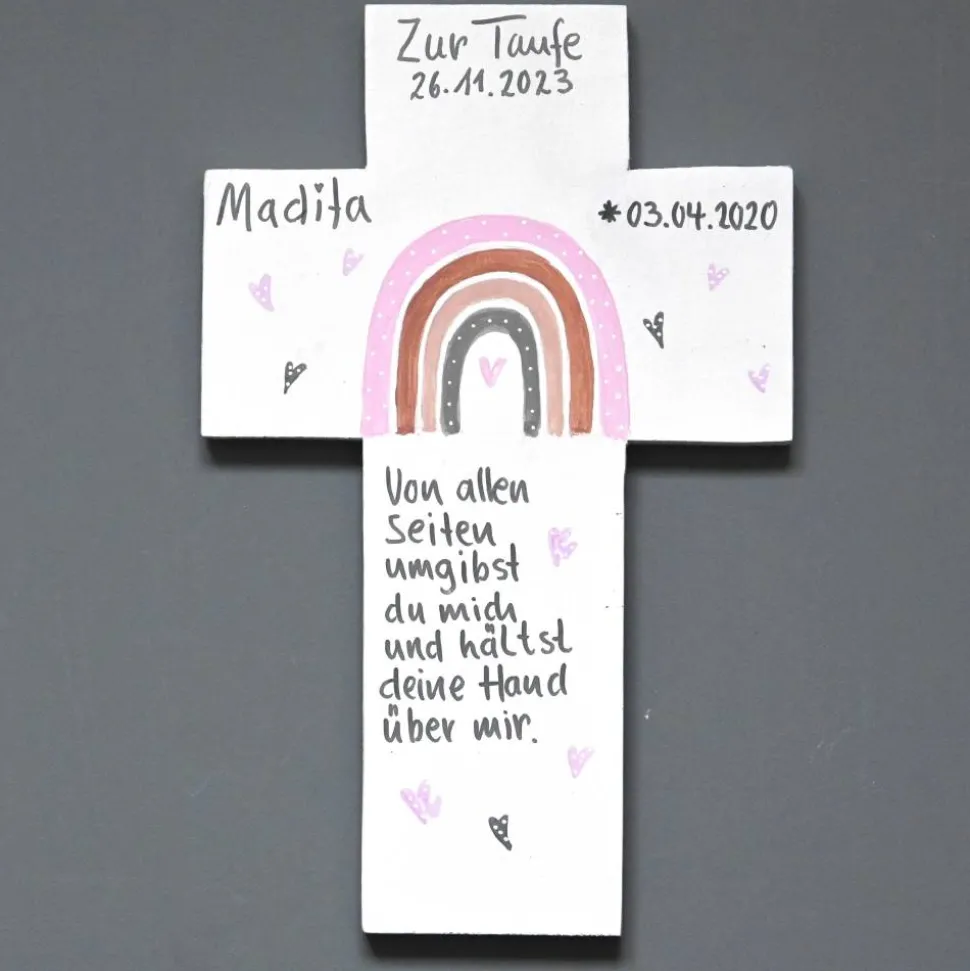 Zur Taufe
26.11.2023
Madita
*03.04.2020
Von allen
Seiten
umgibst
du mich
und hältst
deine Hand
über mir.